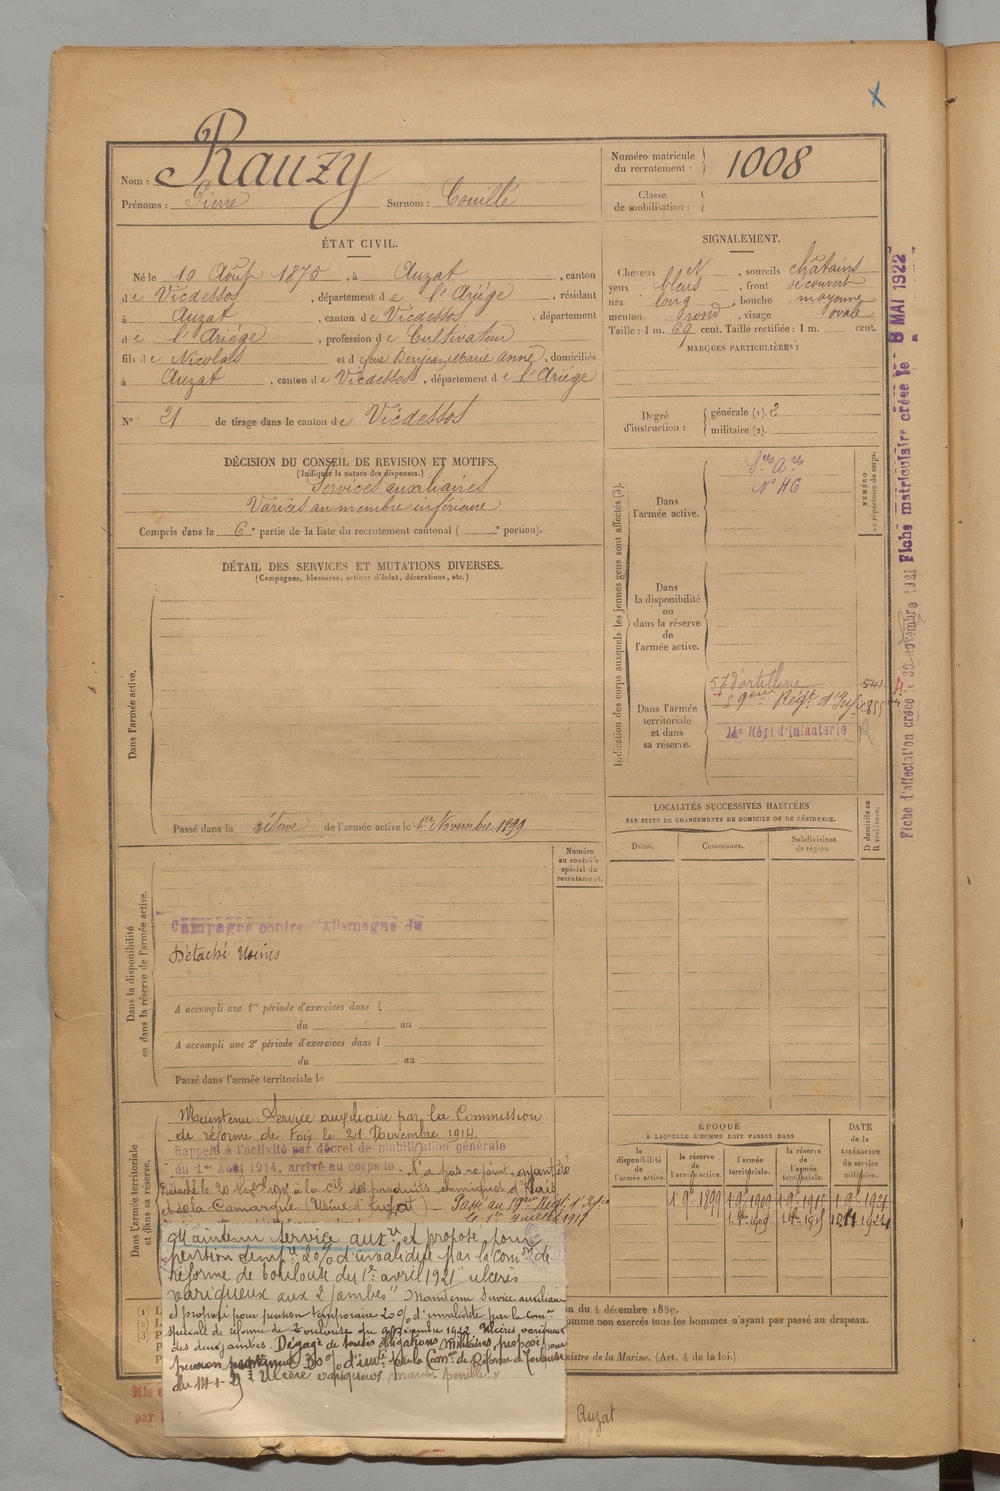 X
Nom : Rauzy
Prénoms : Pierre Surnom : Couillé
Numéro matricule du recrutement : 1008
Classe de mobilisation :
ÉTAT CIVIL.
Né le 10 Août 1875, à Auzat, canton
de Vicdessos, département de l'Ariège, résidant
à Auzat, canton de Vicdessos, département
de l'Ariège, profession de Cultivateur
fils de Nicolas et de Marie Anne, domiciliés
à Auzat, canton de Vicdessos, département de l'Ariège
N° 21 de tirage dans le canton de Vicdessos
SIGNALEMENT.
Cheveux N, sourcils châtains
yeux bleus, front découvert
nez long, bouche moyenne
menton rond, visage ovale
Taille : 1 m. 69 cent. Taille rectifiée : 1 m. cent.
MARQUES PARTICULIÈRES :
Degré d'instruction : générale (1). 2
militaire (2).
DÉCISION DU CONSEIL DE REVISION ET MOTIFS.
(Indiquer la nature des dispenses.)
Services auxiliaires
Varices au membre inférieur
Compris dans la 6e partie de la liste du recrutement cantonal ( e portion).
DÉTAIL DES SERVICES ET MUTATIONS DIVERSES.
(Campagnes, blessures, actions d'éclat, décorations, etc.)
Dans l'armée active.
Passé dans la réserve de l'armée active le 1er Novembre 1899
Indication des corps auxquels les jeunes gens sont affectés (3).
NUMÉRO au répertoire du corps.
Dans l'armée active.
Sces Ares
N° 46
Dans la disponibilité ou dans la réserve de l'armée active.
Dans l'armée territoriale et dans sa réserve.
57 d'artillerie
59eme Régt d'Infie
14e Régt d'Infanterie
LOCALITÉS SUCCESSIVES HABITÉES
PAR SUITE DE CHANGEMENTS DE DOMICILE OU DE RÉSIDENCE.
D domicile ou R résidence.
Dates. Communes. Subdivisions de région.
Dans la disponibilité ou dans la réserve de l'armée active.
Numéro au contrôle spécial du recrutement.
Campagne contre l'Allemagne du
Détaché Usines
A accompli une 1re période d'exercices dans l
du au
A accompli une 2e période d'exercices dans l
du au
Passé dans l'armée territoriale le
Dans l'armée territoriale et dans sa réserve.
Maintenu Service auxiliaire par la Commission
de réforme de Foix le 21 Novembre 1914.
Rappelé à l'activité par décret de mobilisation générale
du 1er Août 1914, arrivé au corps le - N'a pas rejoint,
Détaché le 20 à la Cie des produits chimiques d'Alais
et de la Camargue (Usine d'Auzat) - Passé au 59eme Régt d'Infie
le 1er Juillet 1917
Maintenu service auxre et proposé pour
pension tempre 20% d'invalidité par la Comon de
réforme de Toulouse du 1er avril 1921 "ulcères
variqueux aux 2 jambes" Maintenu Service auxiliaire
et proposé pour pension temporaire 20% d'invalidité par la Comon
spéciale de réforme de Toulouse du 1922. Ulcères variqueux
des deux jambes. Dégagé de toutes obligations militaires, proposé pour
pension 30% d'invté par la Comon de Réforme de Toulouse
du 14-1-29 : Ulcère variqueux
ÉPOQUE
À LAQUELLE L'HOMME DOIT PASSER DANS
la disponibilité de l'armée active. la réserve de l'armée active. l'armée territoriale. la réserve de l'armée territoriale.
DATE de la LIBÉRATION du service militaire.
1 9bre 1899 1 9bre 1909 1 9bre 1915 1 9bre 1921
1 8bre 1909 1 8bre 1915 1924
on du 4 décembre 1889.
omme non exercés tous les hommes n'ayant pas passé au drapeau.
inistre de la Marine. (Art. 4 de la loi.)
Auzat
Mis
par
Fiche d'affectation créée le 30 novembre 1921 Fiche matriculaire créée le 8 MAI 1922